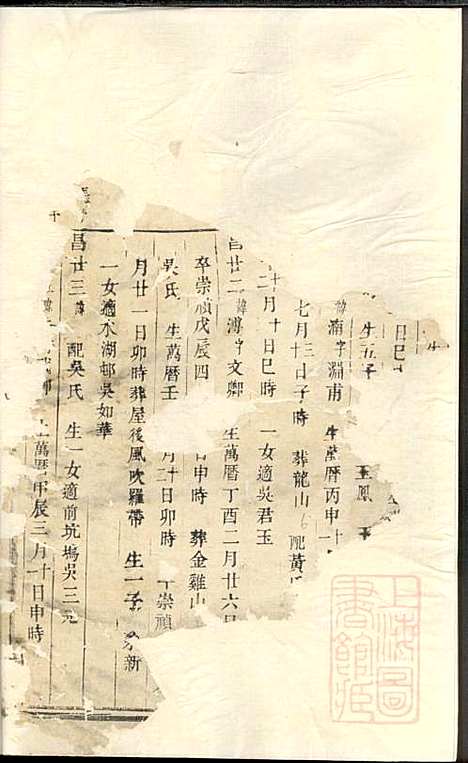 生
日巳
生五子 玉鳳
諱湳字淵甫 生萬曆丙申十
七月三日子時 葬龍山 配黃
十月十日巳時 一女適吳君玉
昌廿二 諱溥字文卿 生萬曆丁酉二月廿六日
卒崇禎戊辰四 日申時 葬金雞山
吳氏 生萬曆壬 月二日卯時 卒崇禎
月廿一日卯時葬屋後風吹羅帶 生一子 新
一女適水湖邨吳如華
昌廿三 諱 配吳氏 生一女適前坑塢吳三元
萬曆甲辰三月十日申時
上海圖書館藏